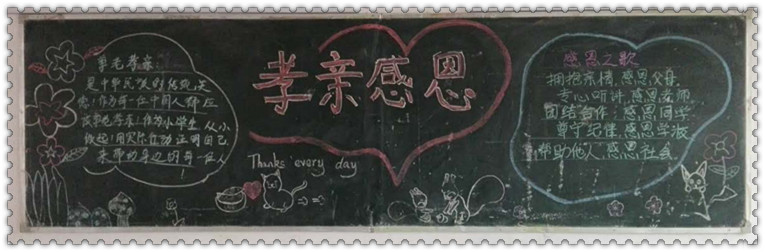 孝老爱亲
是中华民族的传统美
德！作为每一位中国人都应
该孝老爱亲！作为小学生，从小
做起！用实际行动证明自己
来帮助身边的每一位人
孝亲感恩
Thanks every day
感恩之歌
拥抱亲情，感恩父母
专心听讲，感恩老师
团结合作，感恩同学
尊守纪律，感恩学校
帮助他人，感恩社会